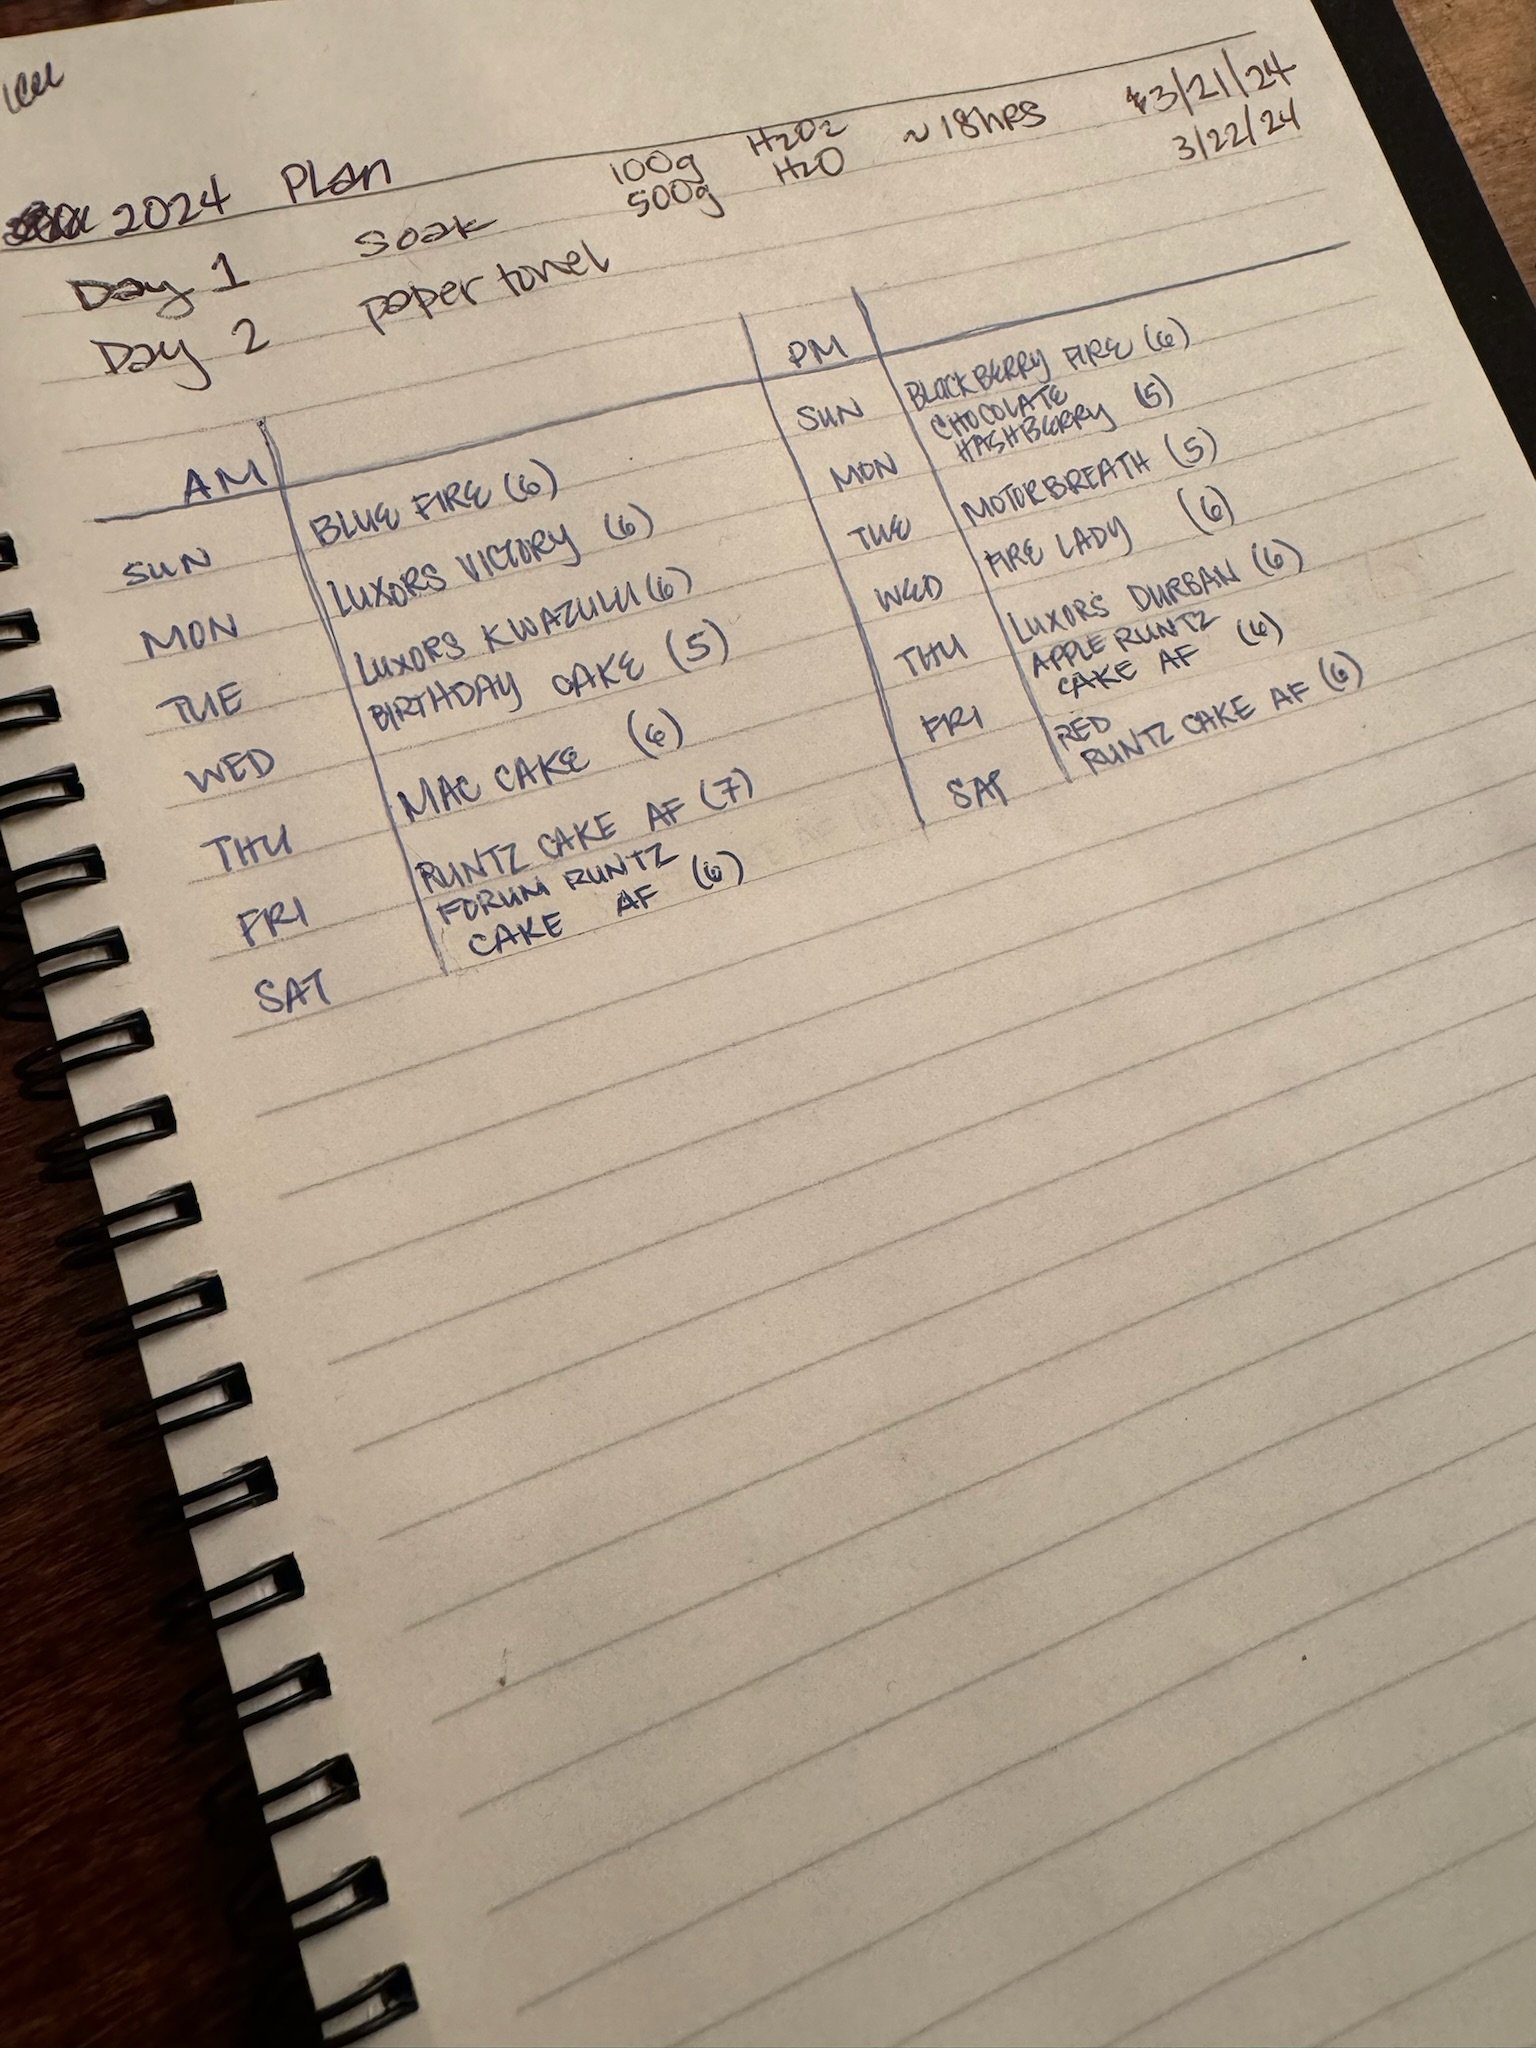 2024 Plan
Day 1 soak 100g H2O2 ~18hrs 3/21/24
500g H2O
Day 2 paper towel 3/22/24
AM
SUN BLUE FIRE (6)
MON LUXORS VICTORY (6)
TUE LUXORS KWAZULU (6)
WED BIRTHDAY CAKE (5)
THU MAC CAKE (6)
FRI RUNTZ CAKE AF (7)
SAT FORUM RUNTZ
CAKE AF (6)
PM
SUN BLACKBERRY FIRE (6)
MON CHOCOLATE
HASHBERRY (5)
TUE MOTORBREATH (5)
WED FIRE LADY (6)
THU LUXORS DURBAN (6)
FRI APPLE RUNTZ
CAKE AF (6)
SAT RED
RUNTZ CAKE AF (6)